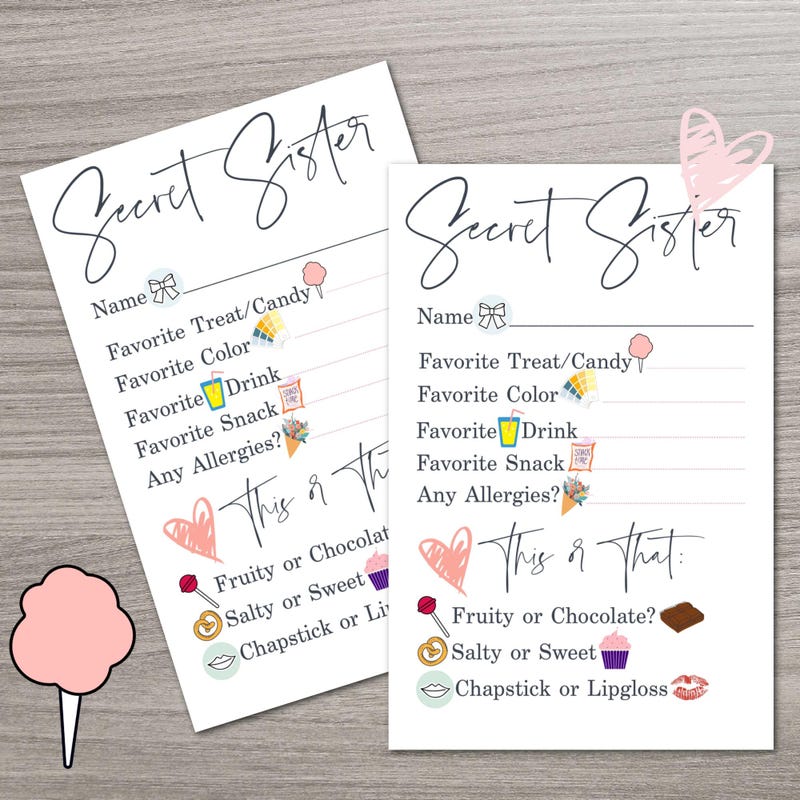 Secret Sister
Name
Favorite Treat/Candy
Favorite Color
Favorite Drink
Favorite Snack
Any Allergies?
This or Tha
Fruity or Chocolat
Salty or Sweet
Chapstick or Lip
Secret Sister
Name
Favorite Treat/Candy
Favorite Color
Favorite Drink
Favorite Snack
Any Allergies?
This or That:
Fruity or Chocolate?
Salty or Sweet
Chapstick or Lipgloss